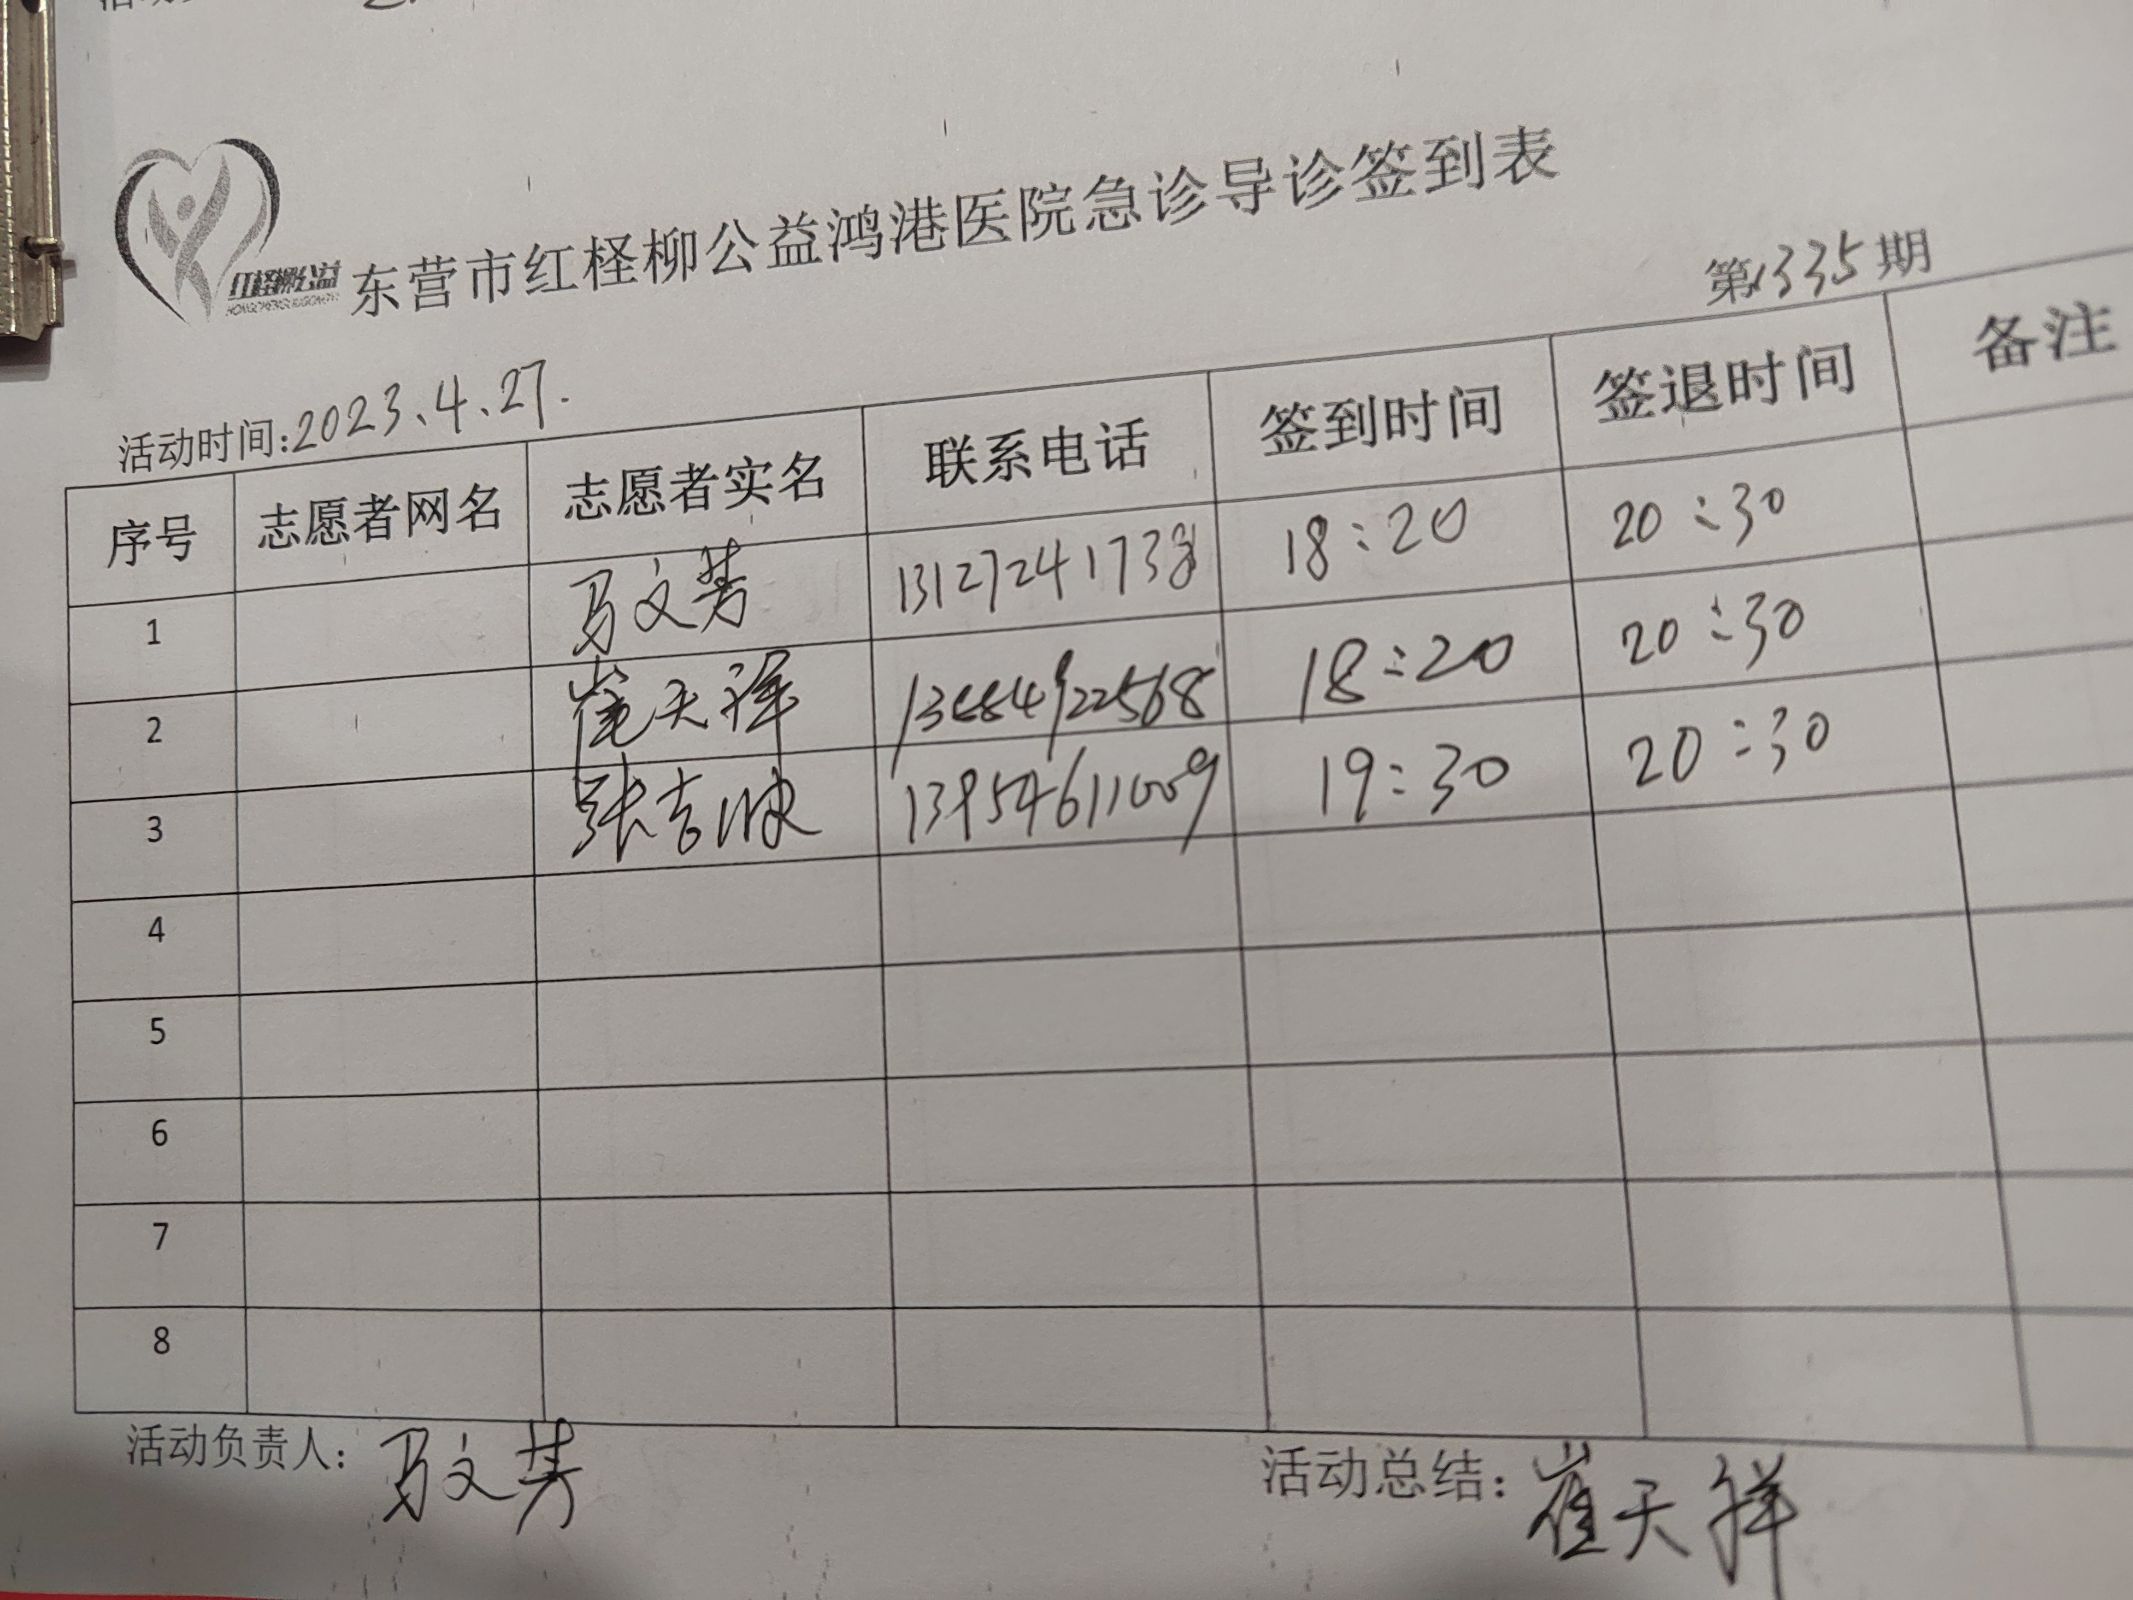 红柽柳公益
东营市红柽柳公益鸿港医院急诊导诊签到表
第1335期
活动时间:2023、4、27.
序号 志愿者网名 志愿者实名 联系电话 签到时间 签退时间 备注
1 马文芳 1312724173 18:20 20:30
2 崔天祥 18:20 20:30
3 张吉 13954611009 19:30 20:30
4
5
6
7
8
活动负责人: 马文芳 活动总结: 崔天祥